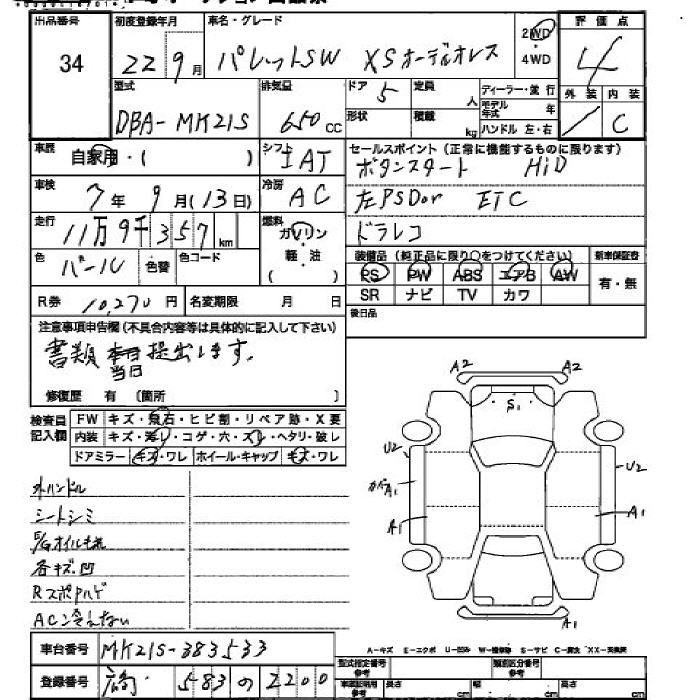 出品番号 初度登録年月 車名・グレード 評価点
34 22 9月 パレットSW XSオーディオレス 2WD ・ 4WD 4
型式 排気量 ドア 定員 ディーラー・並行 外装 内装
DBA-MK21S 650 CC 5 人 モデル年式 年 / C
形状 積載 kg ハンドル 左・右
車歴 自家用・( ) シフト IAT セールスポイント (正常に機能するものに限ります)
ボタンスタート HiD
車検 7年 9月(13日) 冷房 AC 左PSDor ETC
走行 11万9千357 km 燃料 ガソリン・軽・油 ( ) ドラレコ
色 パール 色替 色コード 装備品 (純正品に限り○をつけてください) 新車保証書
PS PW ABS エアB AW 有・無
SR ナビ TV カワ
R券 10,270円 名変期限 月 日 後日品
注意事項申告欄(不具合内容等は具体的に記入して下さい)
書類 当日提出します。
修復歴 有 〔箇所 〕
検査員記入欄 FW キズ・飛石・ヒビ割・リペア跡・X要
内装 キズ・汚レ・コゲ・穴・スレ・ヘタリ・破レ
ドアミラー キズ・ワレ ホイール・キャップ キズ・ワレ
A2 A2
S1
U2 U2
A1
A1 A1
A1
外ハンドル
シートシミ
E/Gオイルもれ
各キズ凹
ACン冷えない
A-キズ E-エクボ U-凹み W-補修跡 S-サビ C-腐食 XX-交換済
車台番号 MK21S-383533
登録番号 583 の 2200
型式指定番号 参考 類別区分番号 参考
車庫証明用 参考 長さ cm 幅 cm 高さ cm